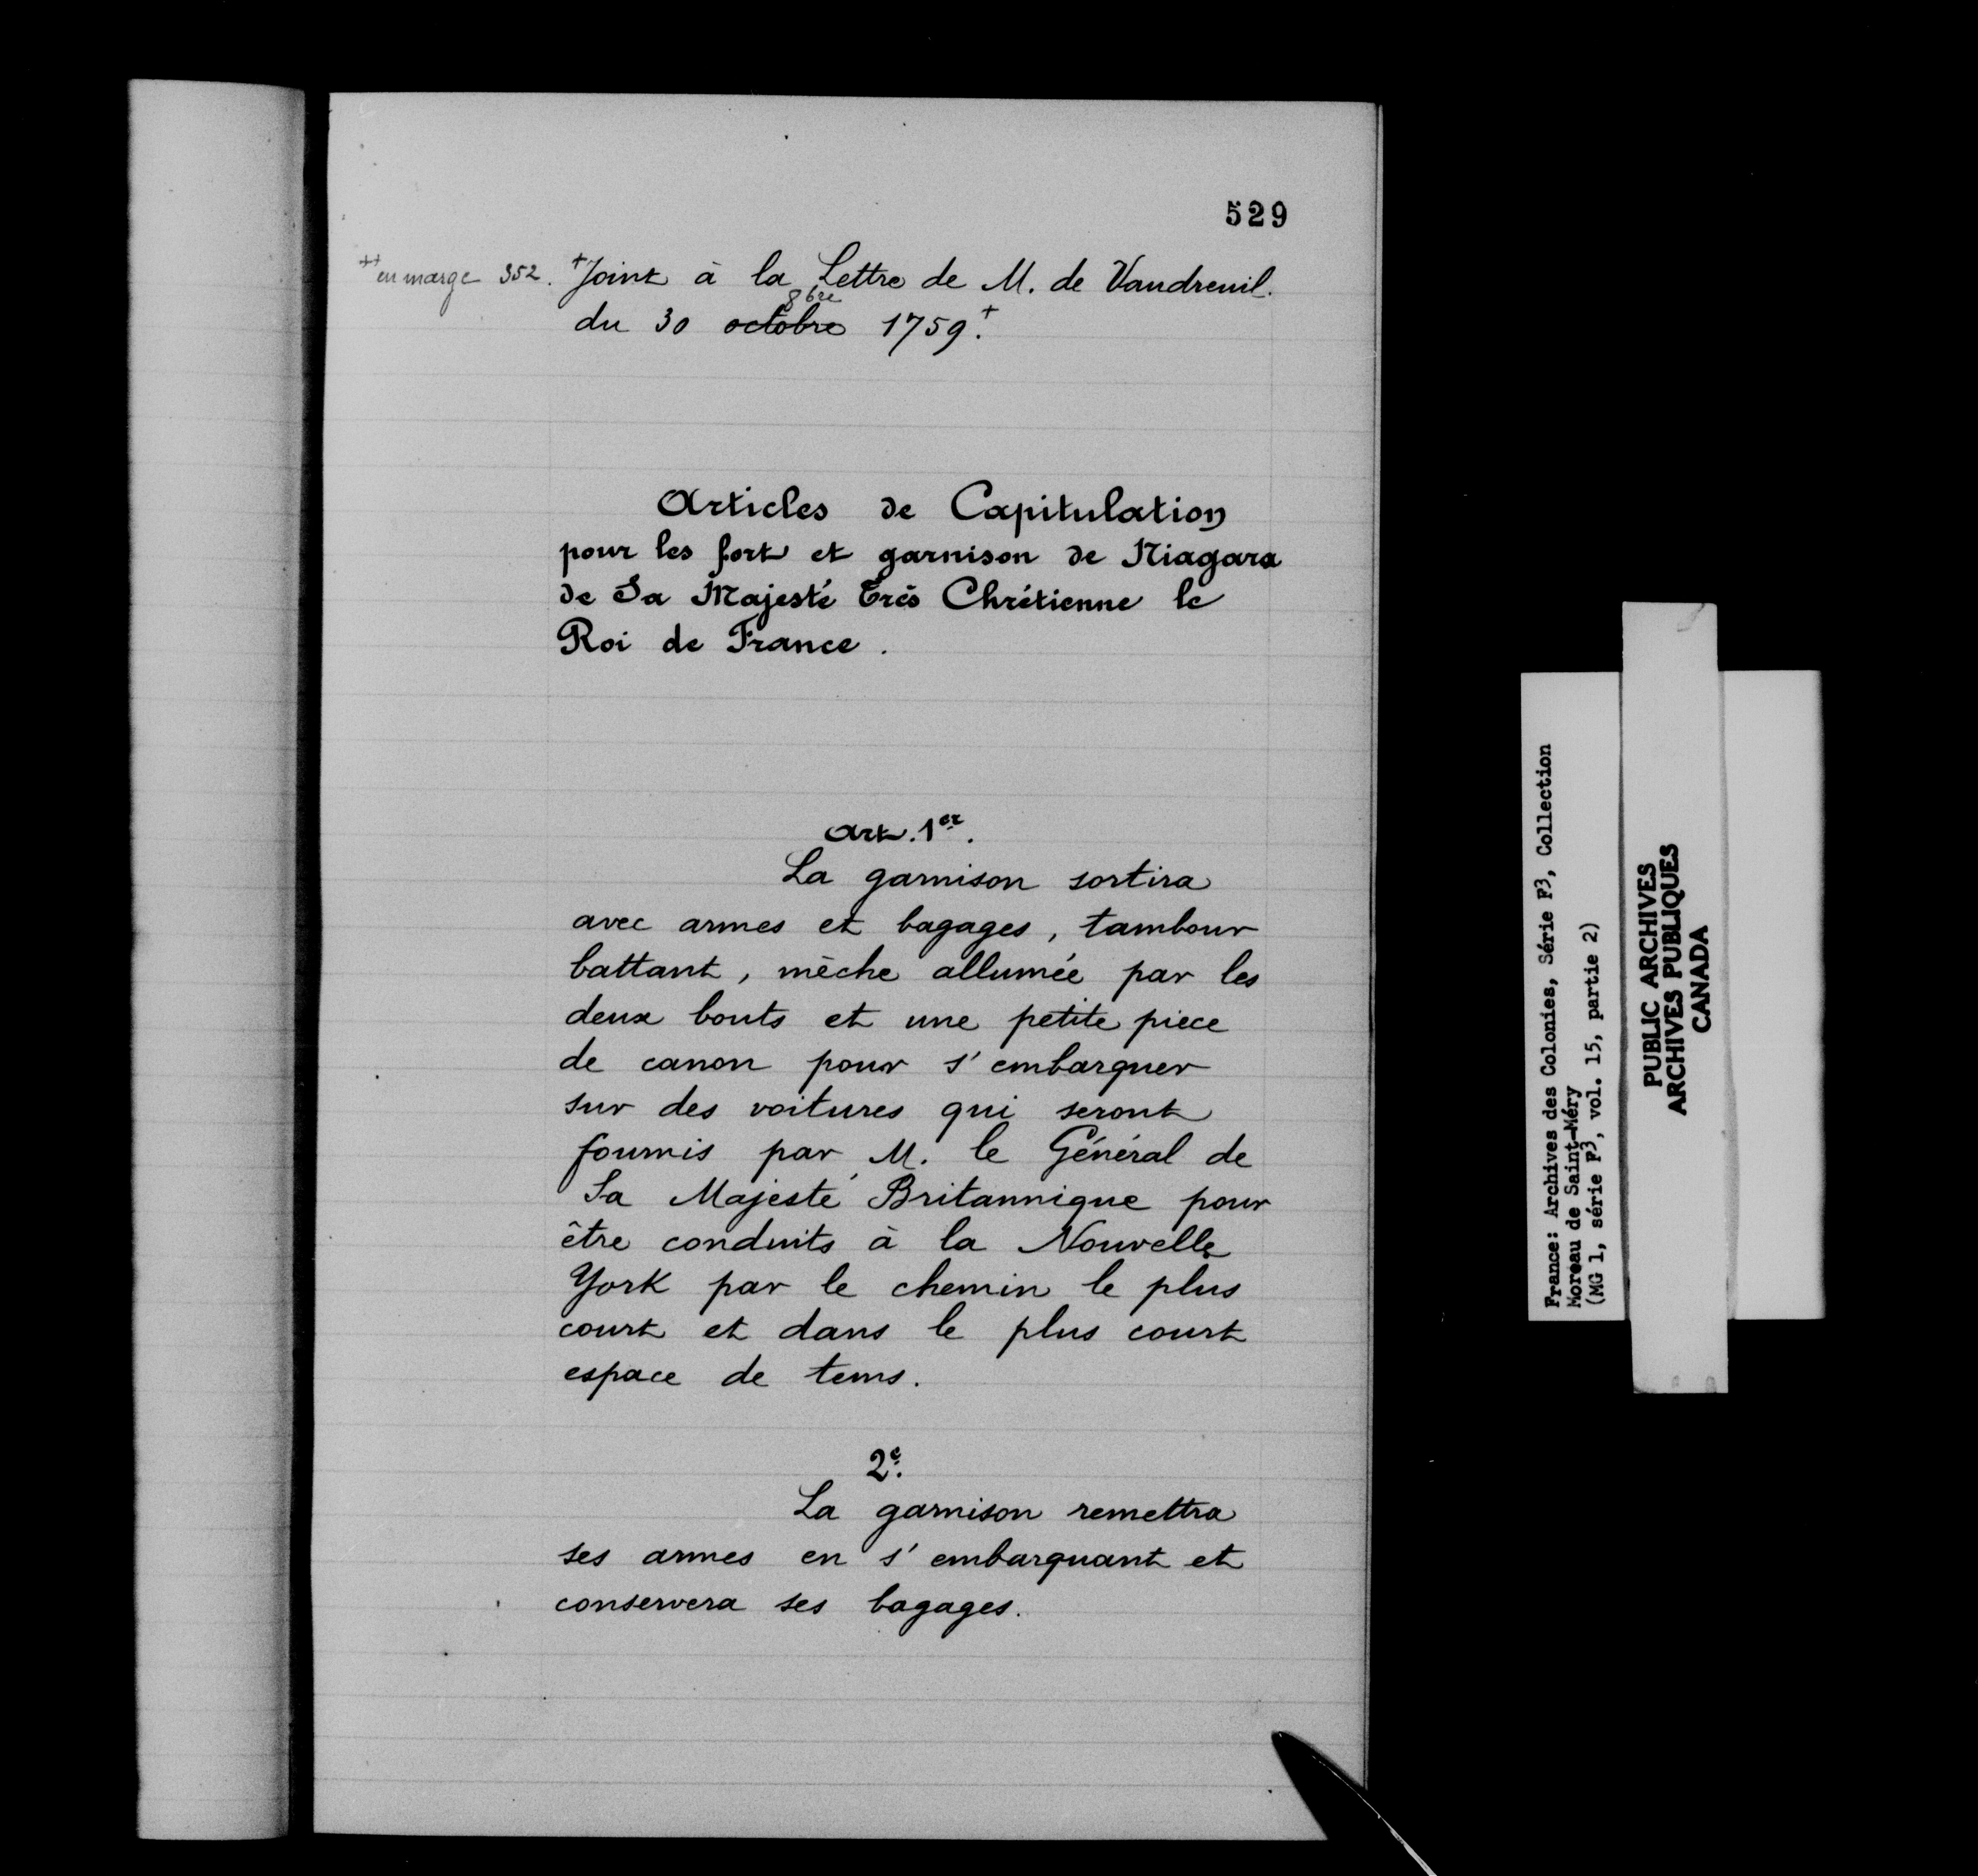 529
++ en marge 352. + Joint à la Lettre de M. de Vaudreuil.
8bre
du 30 octobre 1759. +
Articles de Capitulation
pour les fort et garnison de Niagara
de Sa Majesté Très Chrétienne le
Roi de France.
Art. 1er.
La garnison sortira
avec armes et bagages, tambour
battant, mèche allumée par les
deux bouts et une petite piece
de canon pour s'embarquer
sur des voitures qui seront
fournis par M. le Général de
Sa Majesté Britannique pour
être conduits à la Nouvelle
York par le chemin le plus
court et dans le plus court
espace de tems.
2e.
La garnison remettra
ses armes en s'embarquant et
conservera ses bagages.
France: Archives des Colonies, Série F3, Collection
Moreau de Saint-Méry
(MG 1, série F3, vol. 15, partie 2)
PUBLIC ARCHIVES
ARCHIVES PUBLIQUES
CANADA